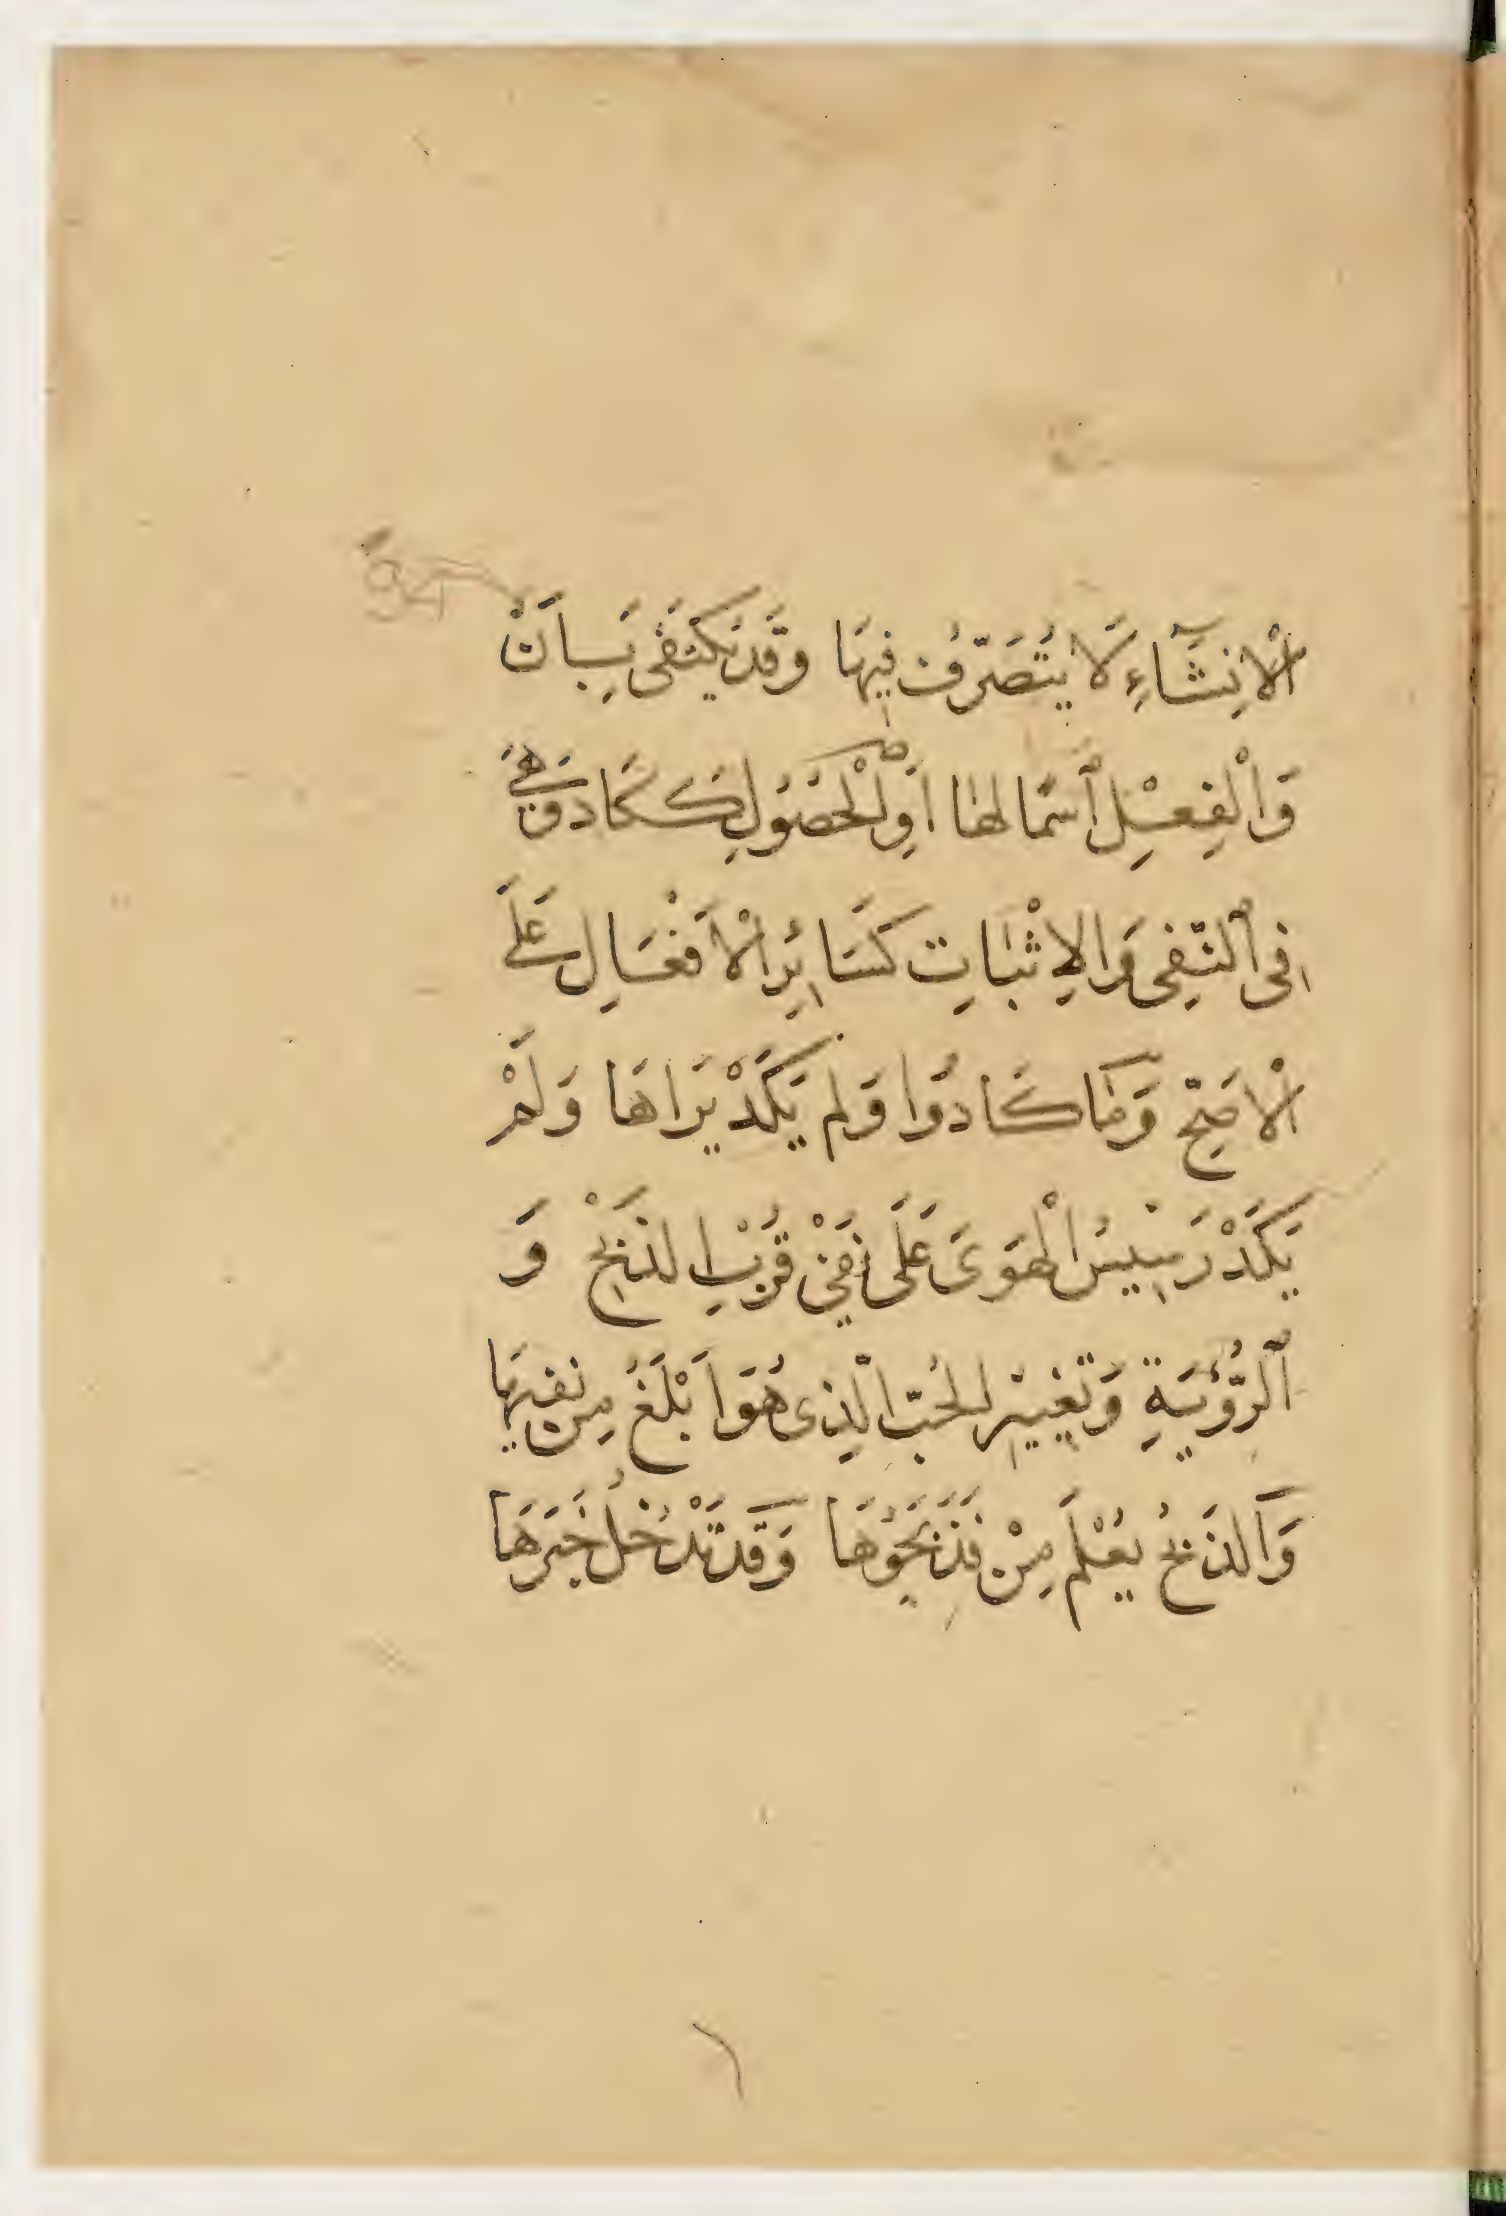 اَلْاِنْشَآءِ لَا يُتَصَرَّفُ فِيهَا وَقَدْ يُكْتَفَى بِاَنْ
وَالْفِعْلِ اسْمًا لَهَا اَوِ لْحُصُولِ كَكَادَ وَهِيَ
فِى النَّفِى وَالْاِثْبَاتِ كَسَائِرِ الْاَفْعَالِ عَلَى
الْاَصَحِّ وَمَا كَادُوا وَلَم يَكَدْ يَرَاهَا وَلَمْ
يَكَدْ رَسِيسُ الْهَوَى عَلَى نَفْىِ قُرْبِ الذَبْحِ وَ
الرُّؤْيَةِ وَتَغْيِيْرِ الحُبِّ الَّذِى هُوَ اَبْلَغُ مِن نفيهَا
وَالذَبْحُ يُعْلَمُ مِنْ فَذَبَحُوهَا وَقَدْ تَدْخُلُ خَبَرَهَا